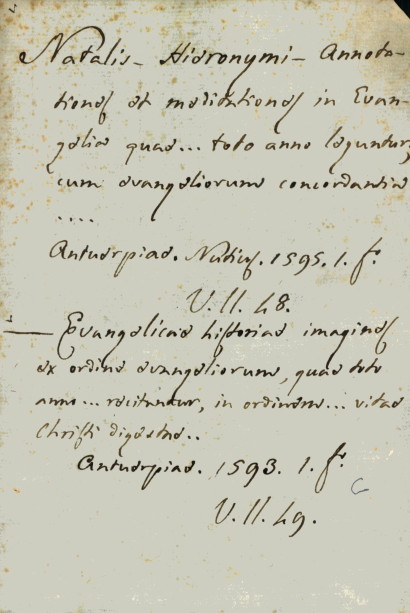 Natalis - Hieronymi - Annota-
tiones et meditationes in Evan-
gelia quae... toto anno leguntur,
cum evangeliorum concordantia
....
Antuerpiae. Nutius. 1595. 1. f.
V. 11. 48.
— Evangelicae historiae imagines
ex ordine evangeliorum, quae toto
anno... recitantur, in ordinem... vitae
Christi digestae..
Antuerpiae. 1593. 1. f.
V. 11. 49.